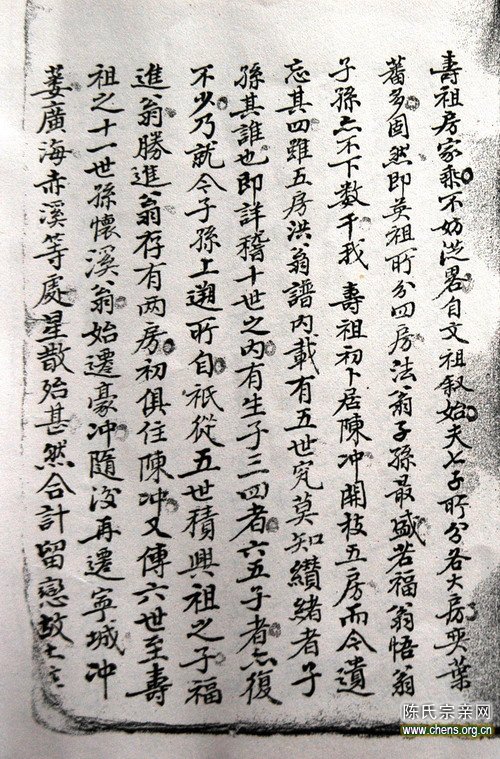 壽祖房家乘不妨從畧自文祖叙始夫七子所分各大房奕葉
蕃多固然即英祖所分四房法翁子孫最盛若福翁悟翁
子孫亦不下数千我 壽祖初卜居陳冲開枝五房而今遺
忘其四雖五房洪翁譜内載有五世究莫知纘緒者子
孫其誰也即詳稽十世之内有生子三四者六五子者亦復
不少乃就今子孫上遡所自祇從五世積興祖之子福
進翁勝進翁存有两房初俱住陳冲又傳六世至壽
祖之十一世孫懷溪翁始遷豪冲随後再遷寧城冲
蒌廣海赤溪等處星散殆甚然合計留戀故土
陈氏宗亲网
www.chens.org.cn